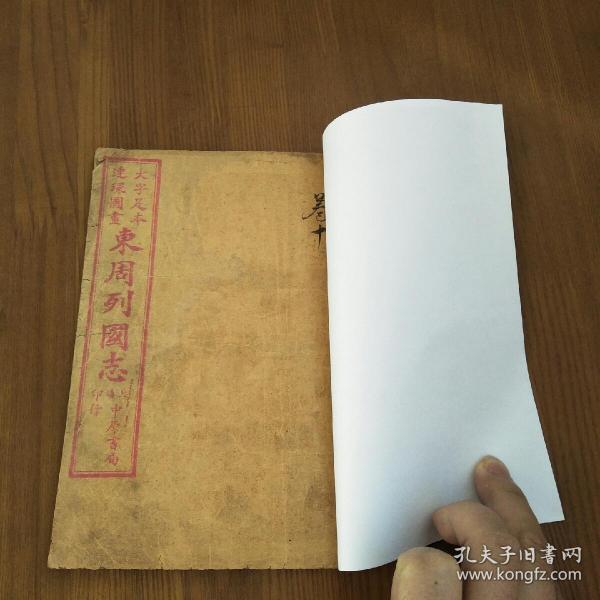 大字足本
連環圖畫
東周列國志
上海中原書局
印行
卷十
孔夫子旧书网
www.kongfz.com